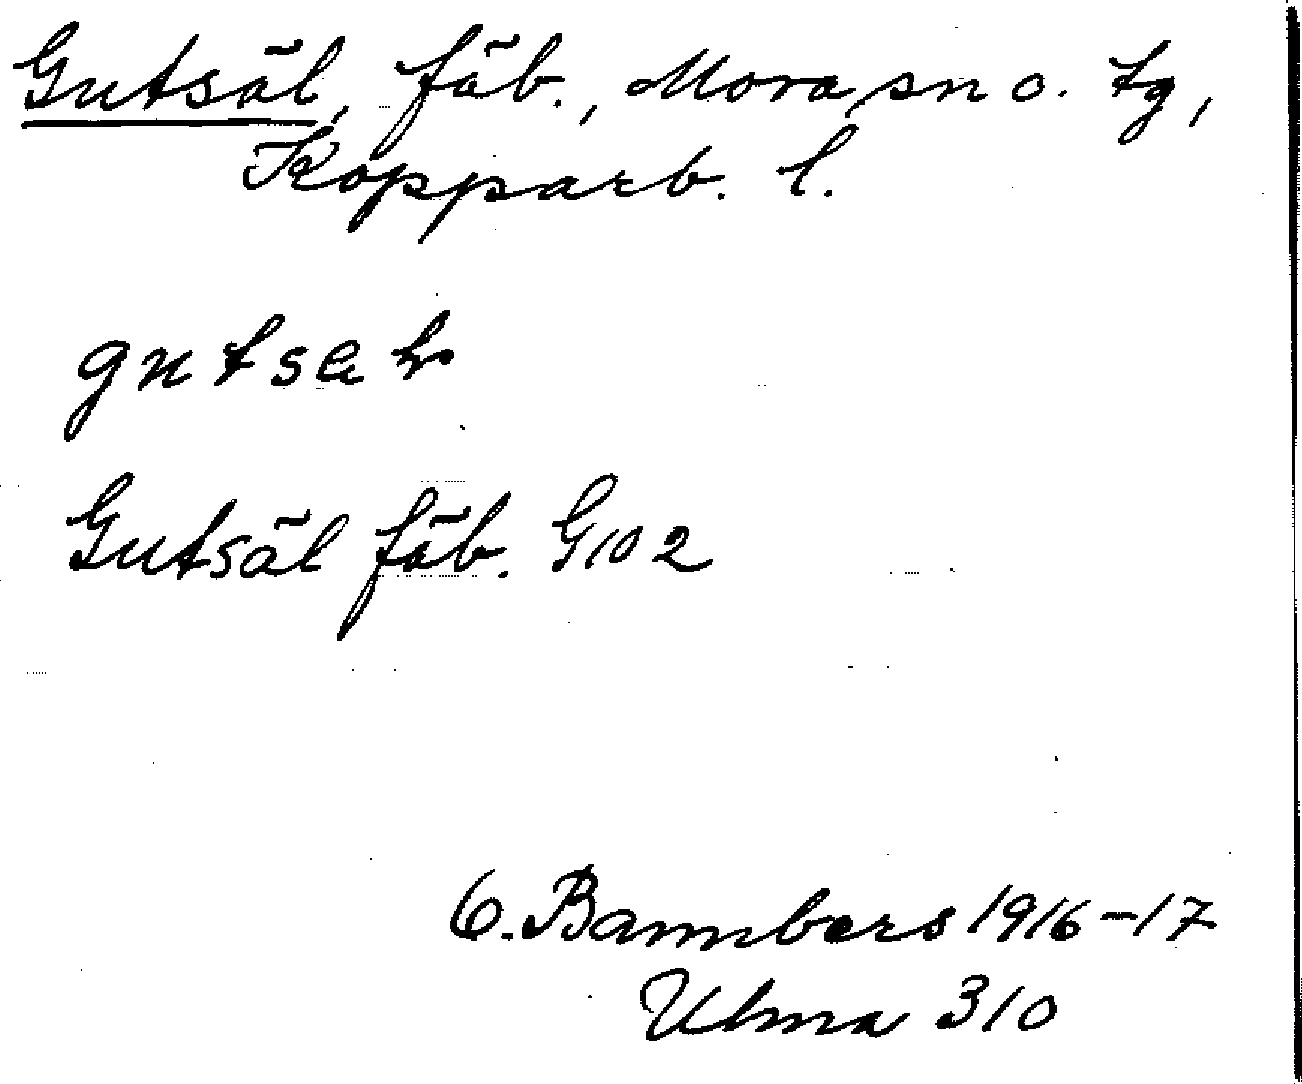 Gutsäl, fäb., Mora sn o. tg,
Kopparb. l.
Gutsäl fäb. G102
O. Bannbers 1916-17
Ulma 310